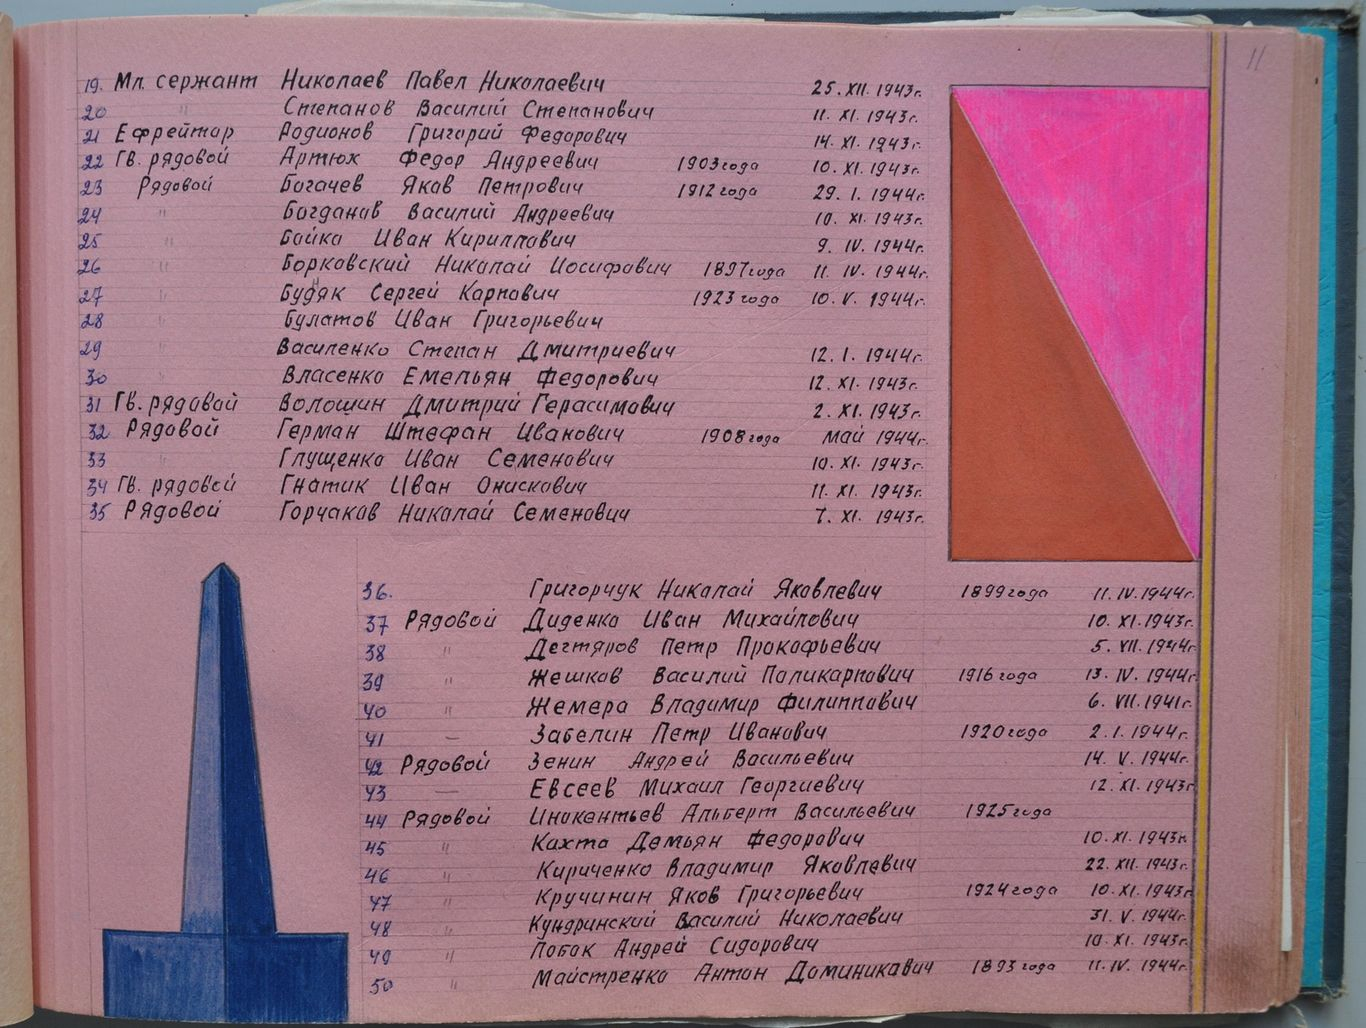 11
19. Мл. сержант Николаев Павел Николаевич 25. XII. 1943г.
20 " Степанов Василий Степанович 11. XI. 1943г.
21 Ефрейтор Родионов Григорий Федорович 14. XI. 1943г.
22 Гв. рядовой Артюх Федор Андреевич 1903 года 10. XI. 1943г.
23 Рядовой Богачев Яков Петрович 1912 года 29. I. 1944г.
24 " Богданов Василий Андреевич 10. XI. 1943г.
25 " Бойко Иван Кириллович 9. IV. 1944г.
26 " Борковский Николай Иосифович 1897 года 11. IV. 1944г.
27 " Будяк Сергей Карпович 1923 года 10. V. 1944г.
28 " Булатов Иван Григорьевич
29 " Василенко Степан Дмитриевич 12. I. 1944г.
30 " Власенко Емельян Федорович 12. XI. 1943г.
31 Гв. рядовой Волошин Дмитрий Герасимович 2. XI. 1943г.
32 Рядовой Герман Штефан Иванович 1908 года май 1944г.
33 " Глущенко Иван Семенович 10. XI. 1943г.
34 Гв. рядовой Гнатик Иван Онискович 11. XI. 1943г.
35 Рядовой Горчаков Николай Семенович 7. XI. 1943г.
36. Григорчук Николай Яковлевич 1899 года 11. IV. 1944г.
37 Рядовой Диденко Иван Михайлович 10. XI. 1943г.
38 " Дегтяров Петр Прокофьевич 5. VII. 1944г.
39 " Жешков Василий Поликарпович 1916 года 13. IV. 1944г.
40 " Жемера Владимир Филиппович 6. VII. 1941г.
41 — Забелин Петр Иванович 1920 года 2. I. 1944г.
42 Рядовой Зенин Андрей Васильевич 14. V. 1944г.
43 — Евсеев Михаил Георгиевич 12. XI. 1943г.
44 Рядовой Инокентьев Альберт Васильевич 1925 года
45 " Кахта Демьян Федорович 10. XI. 1943г.
46 " Кириченко Владимир Яковлевич 22. XII. 1943г.
47 " Кручинин Яков Григорьевич 1924 года 10. XI. 1943г.
48 " Кундринский Василий Николаевич 31. V. 1944г.
49 " Лобок Андрей Сидорович 10. XI. 1943г.
50 " Майстренко Антон Доминикович 1893 года 11. IV. 1944г.